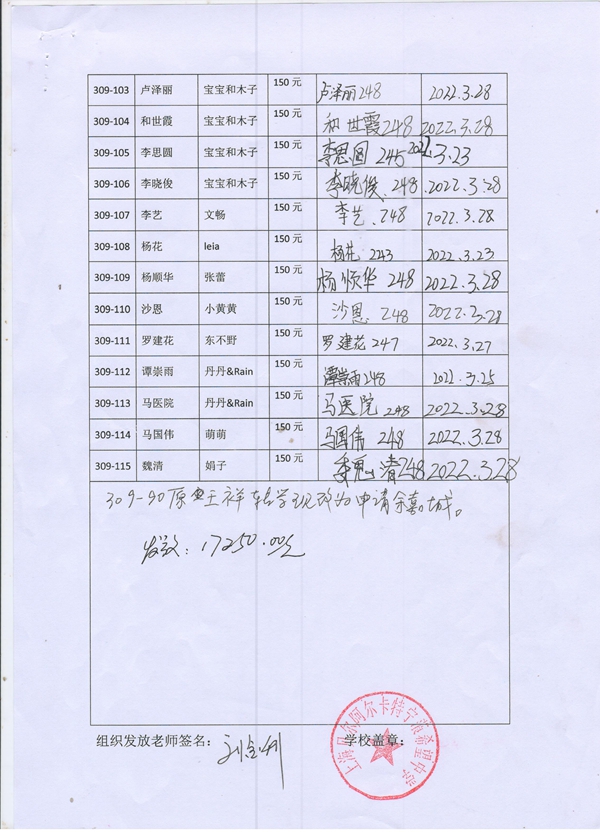 309-103 卢泽丽 宝宝和木子 150 元 卢泽丽248 2022.3.28
309-104 和世霞 宝宝和木子 150 元 和世霞248 2022.3.28
309-105 李思圆 宝宝和木子 150 元 李思圆 245 2022.3.23
309-106 李晓俊 宝宝和木子 150 元 李晓俊.248 2022.3.28
309-107 李艺 文畅 150 元 李艺.248 2022.3.28
309-108 杨花 leia 150 元 杨花 243 2022.3.23
309-109 杨顺华 张蕾 150 元 杨顺华 248 2022.3.28
309-110 沙恩 小黄黄 150 元 沙恩 248 2022.3.28
309-111 罗建花 东不野 150 元 罗建花 247 2022.3.27
309-112 谭崇雨 丹丹&Rain 150 元 谭崇雨248 2022.3.25
309-113 马医院 丹丹&Rain 150 元 马医院 248 2022.3.28
309-114 马国伟 萌萌 150 元 马国伟 248 2022.3.28
309-115 魏清 娟子 150 元 魏清248 2022.3.28
309-90原 王祥转学现改为申请余嘉城。
发放：17250.00元
组织发放老师签名：
学校盖章：
上海贝尔阿尔卡特宁蒗希望中学